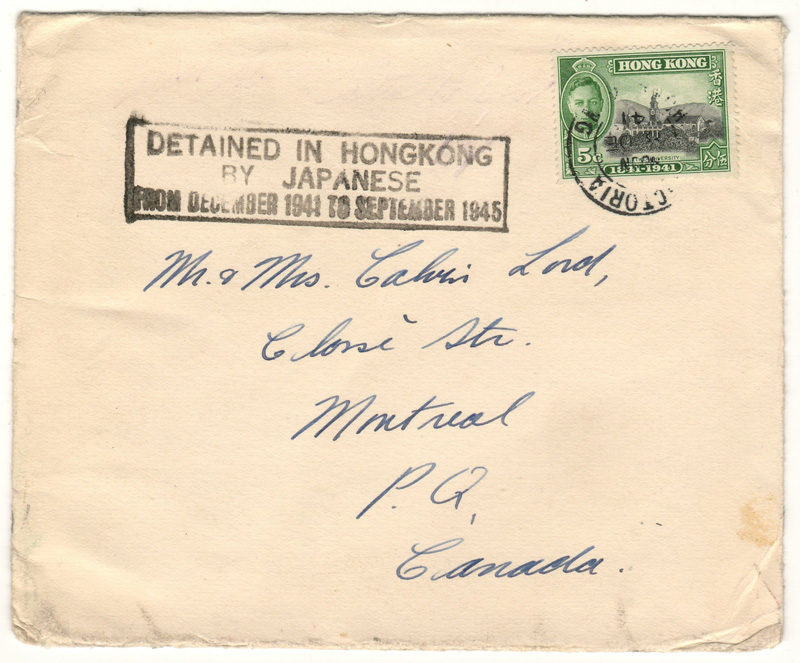 HONG KONG
香港
5c
UNIVERSITY
1841-1941
伍分
VICTORIA
41
DETAINED IN HONGKONG
BY JAPANESE
FROM DECEMBER 1941 TO SEPTEMBER 1945
Mr. & Mrs. Calvin Lord,
Closse Str.
Montreal
P. Q,
Canada.